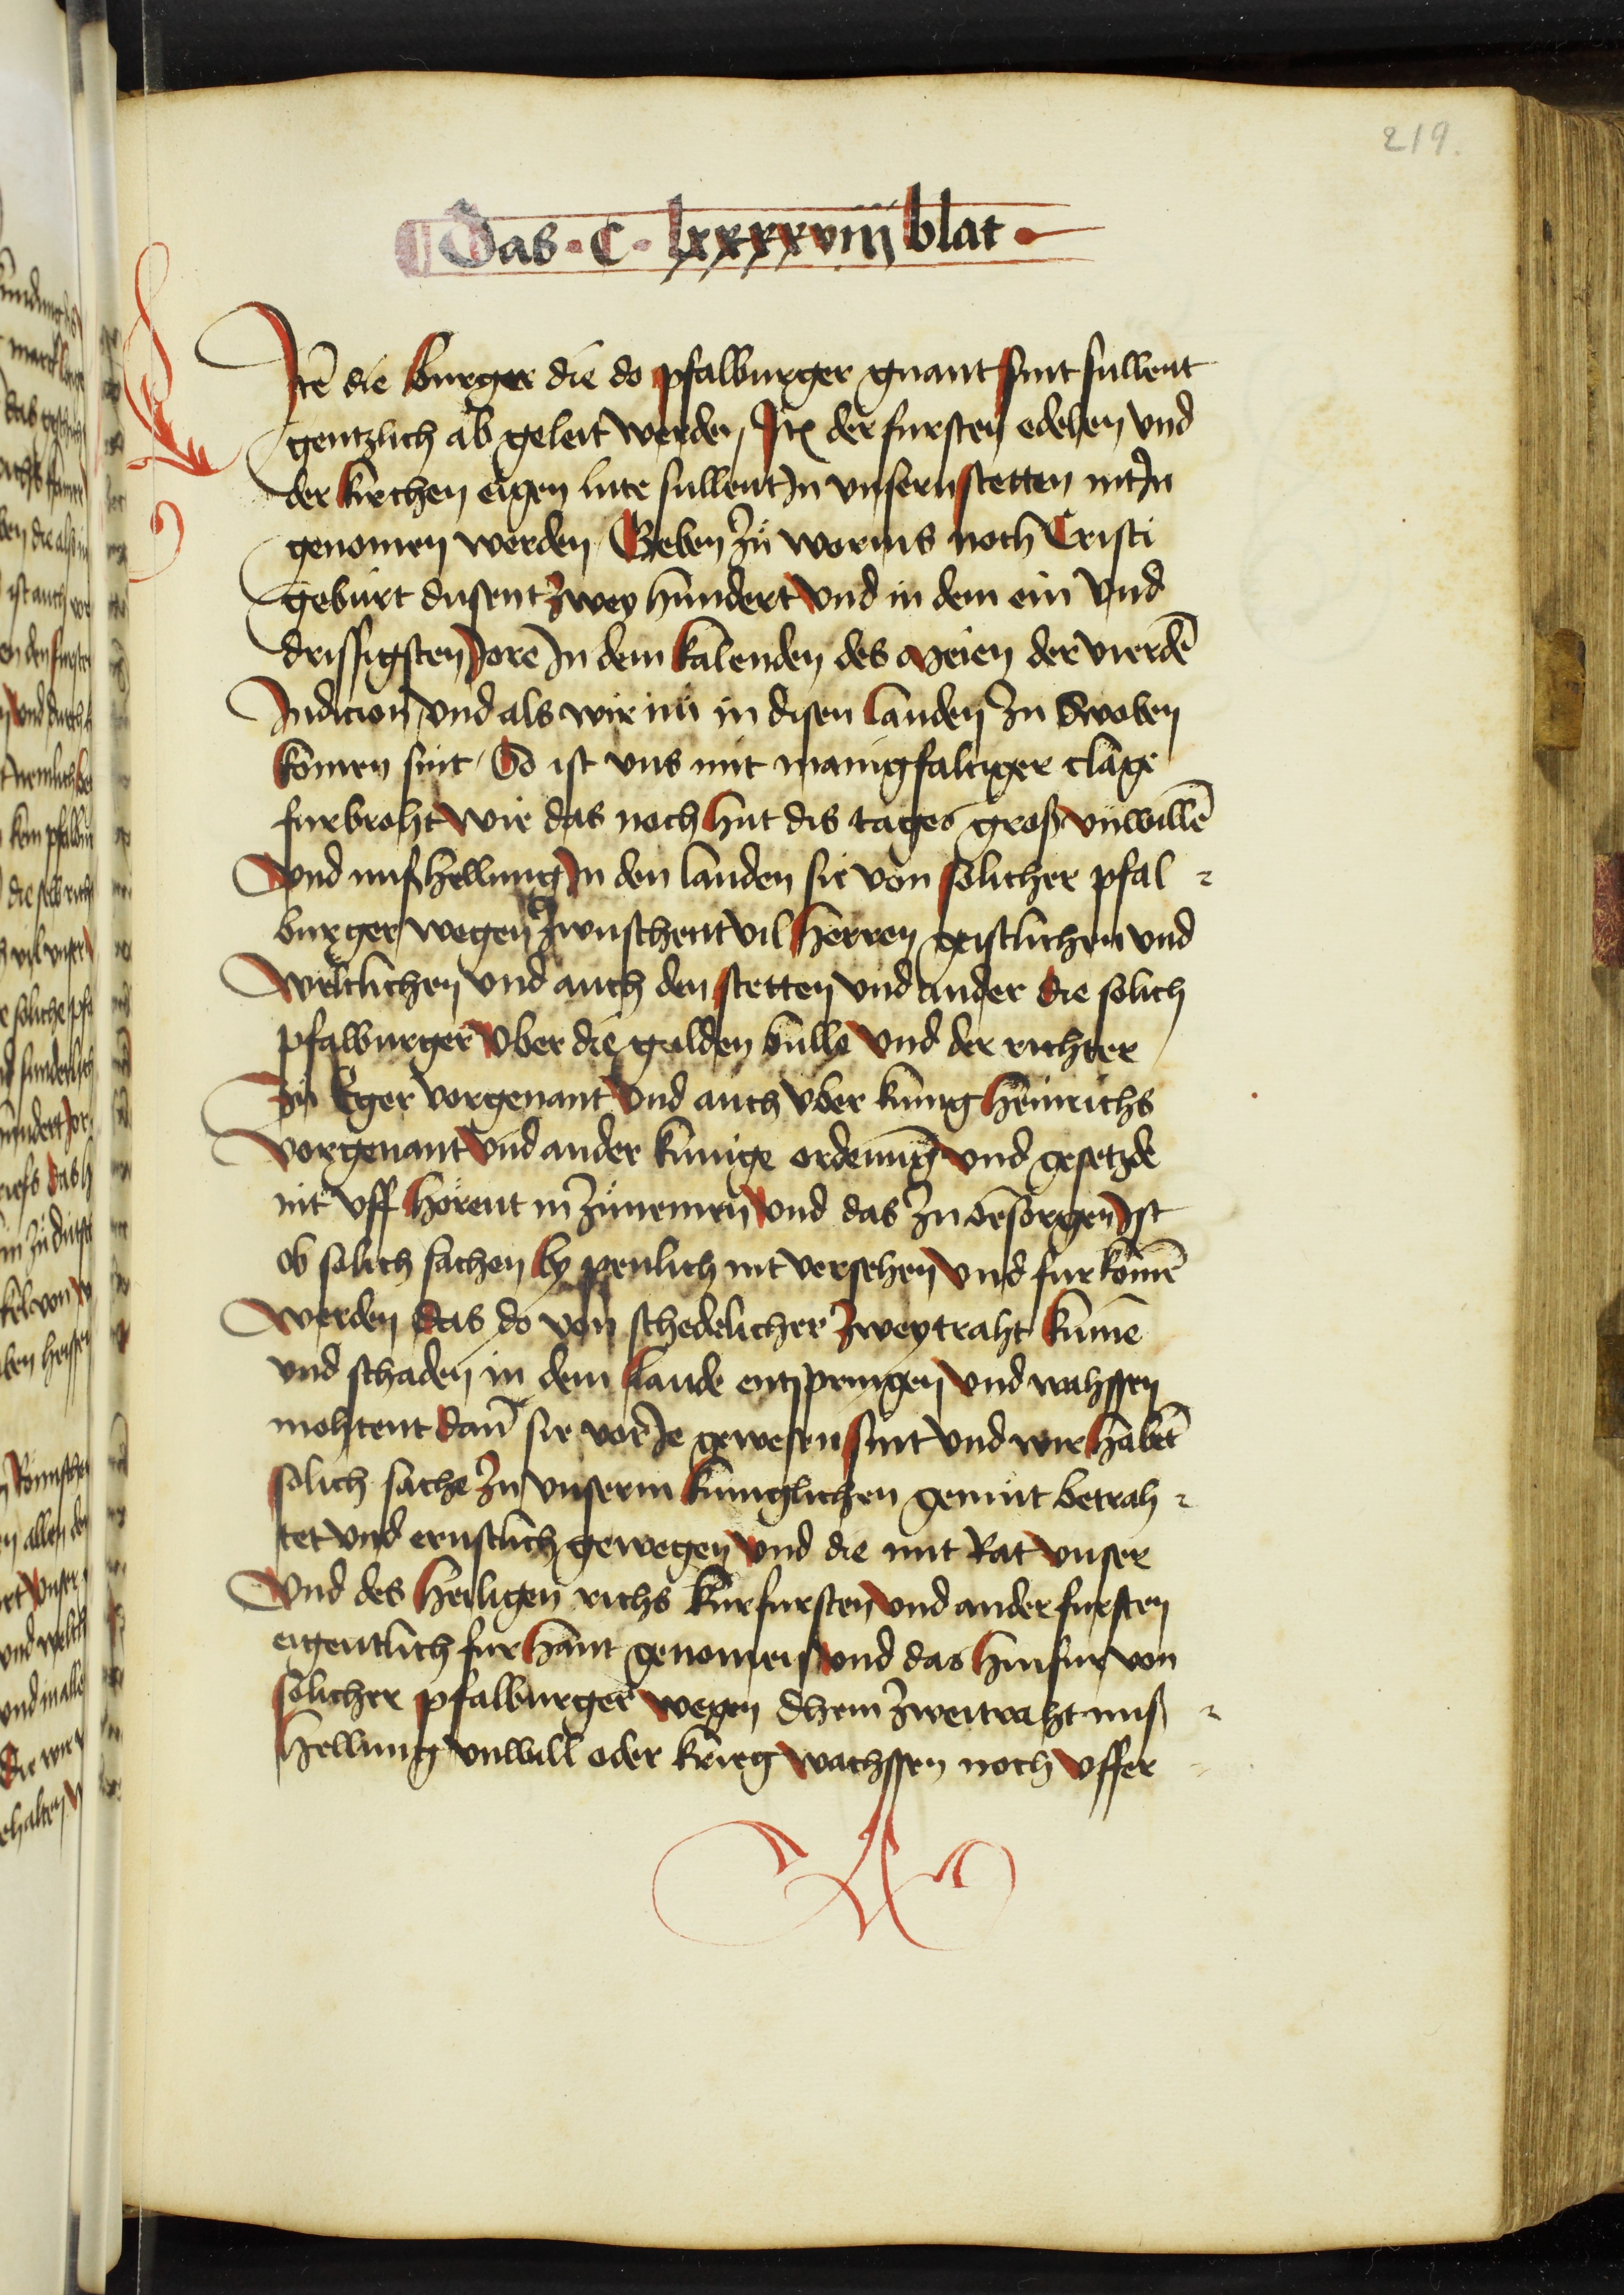 219.
¶ Das · C · lxxxxviiij blat ·
Jtē die burger die do pfalburger gnant sint sullent
gentzlich ab geleit werden / Jtē der fursten edelen vnd
der kirchen eigen lute sullent Jn vnsern stetten nit Jn
genomen werden / Geben zů worms noch Cristi
geburt dusent zwey hundert vnd in dem ein vnd
drissigsten Jore Jn dem kalenden des meien der vierdē
Jndicion / vnd als wir nů in disen landen zu Swoben
komen sint / So ist vns mit manigfaltiger clage
furbroht wie das noch hut dis tages groß vnwillē
vnd mißhellung Jn den landen sie von solicher pfal
burger wegen zwuschent vil herren geistlichen vnd
weltlichen vnd auch den stetten vnd ander die solich
pfalburger vber die gulden bulle vnd der richter
zů Eger vorgenant vnd auch vber kunig heinrichs
vorgenant vnd ander kunige ordenung vnd gesetzde
nit vff horent in zůnemen vnd das zu besorgen Jst
ob solich sachen by penlich nit versehen vnd fur komē
werden das do von schedelicher zweytraht kumē
vnd schaden in dem lande entspringen vnd wahssen
mohtent dan̄ sie vor Je gewesen sint vnd wir habēt
solich sache zu vnserm kuniglichen gemůt betrah
tet vnd ernstlich gewegen vnd die mit Rat vnser
vnd des heiligen richs kurfursten vnd ander fursten
eigentlich fur hant genomen vnd das hinfur von
solicher pfalburger wegen dhein zweitraht miß
hellung vnwill oder krieg wachssen noch vffer